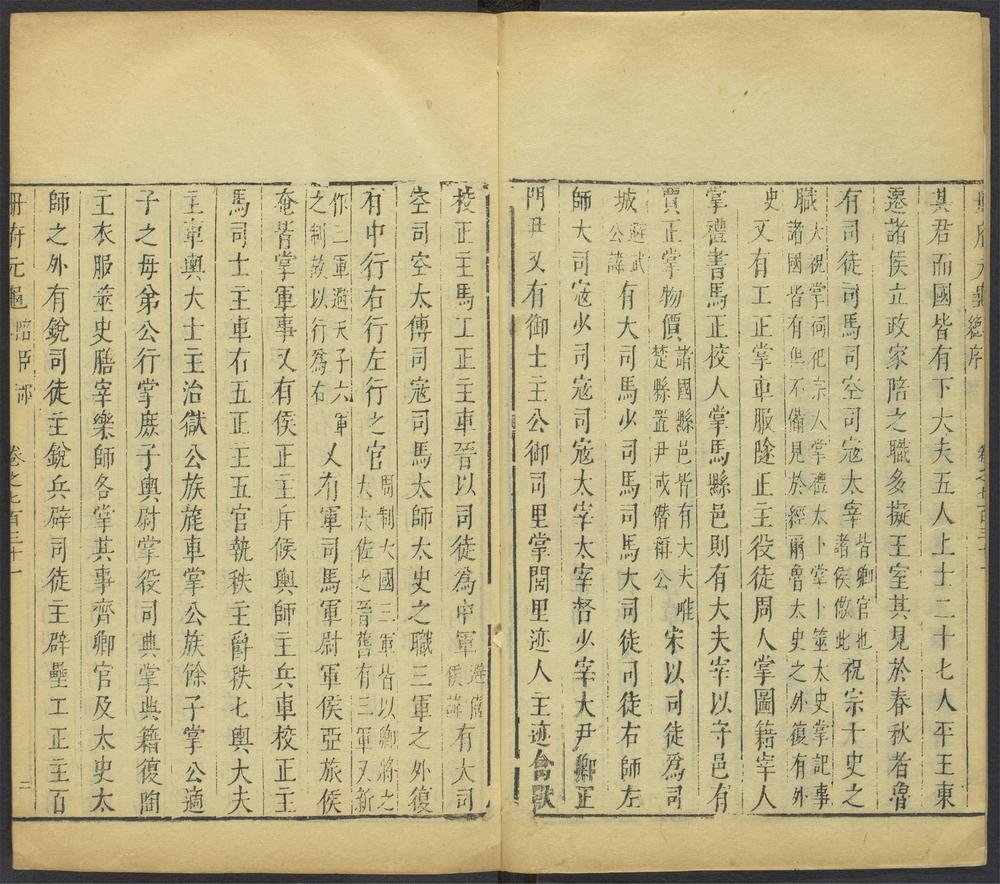 其君而國皆有下大夫五人上士二十七人平王東
遷諸侯立政家陪之職多擬王室其見於春秋者魯
有司徒司馬司空司寇太宰皆卿官也諸侯倣此祝宗卜史之
職大祝掌祠祀宗人掌禮太卜掌卜筮太史掌記事諸國皆有但不備見於經爾魯太史之外復有外
史又有工正掌車服隧正主役徒周人掌圖籍宰人
掌禮書馬正校人掌馬縣邑則有大夫宰以守邑有
賈正掌物價諸國縣邑皆有大夫唯楚縣置尹或僭稱公宋以司徒為司
城避武公諱有大司馬少司馬司馬大司徒司徒右師左
師大司寇少司寇司寇太宰太宰督少宰大尹卿正
門尹又有御士主公御司里掌閭里迹人主迹禽獸
校正主馬工正主車晉以司徒為中軍避僖侯諱有大司
空司空太傅司寇司馬太師太史之職三軍之外復
有中行右行左行之官周制大國三軍皆以卿將之大夫佐之晉舊有三軍又新
作二軍避天子六軍之制故以行為右又有軍司馬軍尉軍侯亞旅侯
奄皆掌軍事又有侯正主斥候輿師主兵車校正主
馬司士主車右五正主五官執秩主爵秩七輿大夫
主車輿大士主治獄公族旄車掌公族餘子掌公適
子之母弟公行掌庶子輿尉掌役司典掌典籍復陶
主衣服筮史膳宰樂師各掌其事齊卿官及太史太
師之外有銳司徒主銳兵辟司徒主辟壘工正主百
冊府元龜 陪臣部 卷之七百三十一 二